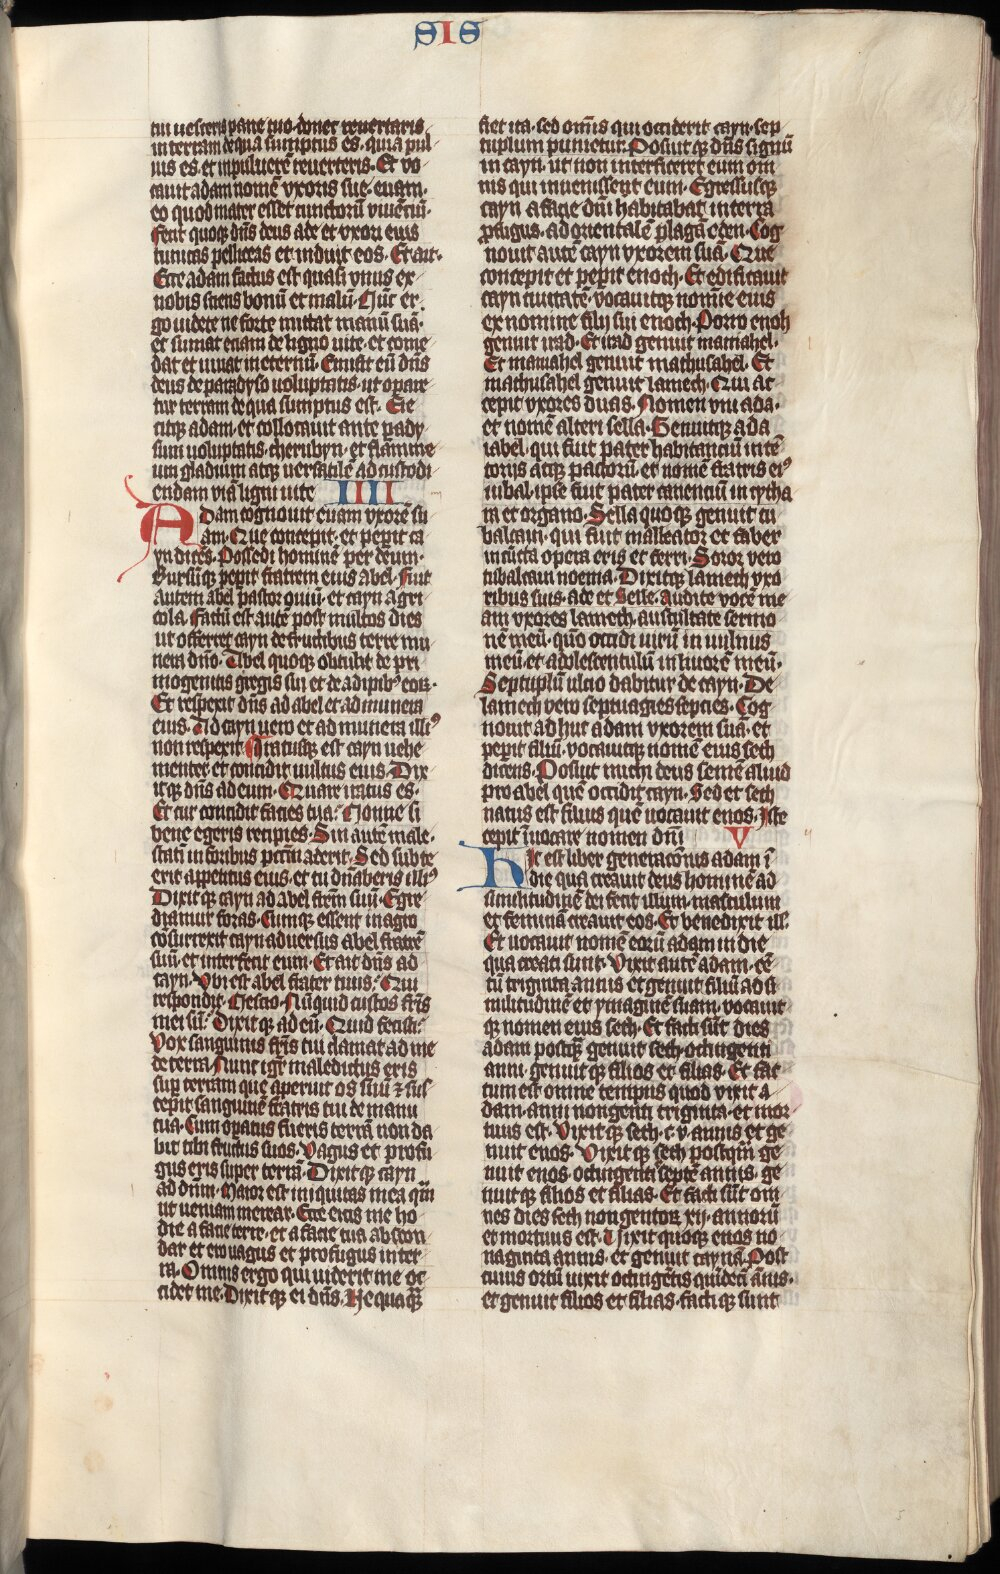 SIS
tui vesceris pane tuo. donec revertaris
in terram de qua sumptus es. quia pul
uis es. et in puluerē reuerteris. Et vo
cauit adam nomē vxoris sue. euam.
eo quod mater esset cunctorū viuēciū.
Fecit quoqꝫ dn̄s deus ade et vxori eius
tunicas pelliceas et induit eos. Et ait.
Ecce adam factus est quasi vnus ex
nobis sciens bonū et malū. Nūc er
go uidete ne forte mittat manū suā.
et sumat eciam de ligno vite. et come
dat et uiuat in eternū. Emisit eū dn̄s
deus de paradyso uoluptatis. ut opare
tur terram de qua sumptus est. Eie
citqꝫ adam. et collocauit ante pady
sum uoluptatis. cherubyn. et flamme
um gladium atqꝫ uersatilē ad custodi
endam viā ligni uite IIII
Adam cognouit euam vxorē su
am. Que concepit. et peperit ca
yn dicēs. Possedi hominē per deum.
Rursūqꝫ peperit fratrem eius abel. Fuit
autem abel pastor ouiū. et cayn agri
cola. Factū est autē post multos dies
ut offerret cayn de fructibus terre mu
nera dn̄o. Abel quoqꝫ obtulit de pri
mogenitis gregis sui et de adipibꝰ eoꝝ.
Et respexit dn̄s ad abel et ad munera
eius. Ad cayn uero et ad munera illiꝰ
non respexit. Iratusqꝫ est cayn uehe
menter et concidit uultus eius. Dix
itqꝫ dn̄s ad eum. Quare iratus es.
Et cur concidit facies tua. Nonne si
bene egeris recipies. Sin autē male.
statī in foribus pctm̄ aderit. Sed sub te
erit appetitus eius. et tu dn̄aberis illiꝰ
Dixitqꝫ cayn ad abel frēm suū. Egre
diamur foras. Cumqꝫ essent in agro
cōsurrexit cayn aduersus abel fratrē
suū. et interfecit eum. Et ait dn̄s ad
cayn. Vbi est abel frater tuus. Qui
respondit. Nescio. Nūquid custos fr̄is
mei sū. Dixitqꝫ ad eū. Quid fecisti.
Vox sanguinis fr̄is tui clamat ad me
de terra. Nunc igr̄ maledictus eris
sup terram que aperuit os suū ⁊ sus
cepit sanguinē fratris tui de manu
tua. Cum opatus fueris terrā non da
bit tibi fructus suos. Vagus et profu
gus eris super terrā. Dixitqꝫ cayn
ad dn̄m. Maior est iniquitas mea qm̄
ut veniam merear. Ecce eicis me ho
die a facie terre. et a facie tua abscon
dar et ero uagus et profugus in ter
ra. Omnis ergo qui uiderit me oc
cidet me. Dixitqꝫ ei dn̄s. Nequaqꝫ̄
fiet ita. sed om̄is qui occiderit cayn. sep
tuplum punietur. Posuitqꝫ dn̄s signū
in cayn. ut non interficeret eum om
nis qui inuenissent eum. Egressusqꝫ
cayn a facie dn̄i habitabat in terra
ꝓfugus. ad orientalē plagā eden. Cog
nouit autē cayn vxorem suā. Que
concepit et pepit enoch. Et edificauit
cayn ciuitatē. vocauitqꝫ nomē eius
ex nomine filij sui enoch. Porro enoh
genuit irad. Et irad genuit maniahel.
Et maniahel genuit mathusahel. Et
mathusahel genuit lamech. Qui ac
cepit vxores duas. Nomen vni ada.
et nomē alteri sella. Genuitqꝫ ada
iabel. qui fuit pater habitanciū in tē
torijs atqꝫ pastorū. et nomē fratris eiꝰ
iubal. ipse fuit pater canenciū in cytha
ra et organo. Sella quoqꝫ genuit tu
balcain. qui fuit malleator et faber
in cūcta opera eris et ferri. Soror vero
tubalcain noema. Dixitqꝫ lamech vxo
ribus suis. ade et Selle. Audite vocē me
am vxores lamech. auscultate sermo
nē meū. quo occidi uirū in uulnus
meū. et adolescentulū in liuorē meū.
Septuplū ulcio dabitur de cayn. De
lamech vero septuagies sepcies. Cog
nouit adhuc adam vxorem suā. et
pepit filiū. vocauitqꝫ nomē eius seth
dicens. Posuit michi deus semē aliud
pro abel quē occidit cayn. Sed et seth
natus est filius quē uocauit enos. Iste
cepit īuocare nomen dn̄i V
Hic est liber generacōnis adam ī
die qua creauit deus hominē ad
similitudinē dei fecit illum. masculum
et feminā creauit eos. Et benedixit ill.
Et uocauit nomē eorū adam in die
qua creati sunt. Vixit autē adam. cē
tū triginta annis et genuit filiū ad si
militudinē et ymaginē suam. vocauit
qꝫ nomen eius seth. Et facti sūt dies
adam postqꝫ̄ genuit seth octingenti
anni. genuitqꝫ filios et filias. Et fac
tum est omne tempus quod vixit a
dam. anni nongenti triginta. et mor
tuus est. Vixitqꝫ seth. c v. annis et ge
nuit enos. Vixitqꝫ seth postqm̄ ge
nuit enos. octingentis septē annis. ge
nuitqꝫ filios et filias. Et facti sūt om
nes dies seth nongentoꝝ xij. annorū
et mortuus est. Vixit quoqꝫ enos no
naginta annis. et genuit caynā. Post
cuius ortū uixit octingētis quīdecī ānis.
et genuit filios et filias. factiqꝫ sunt